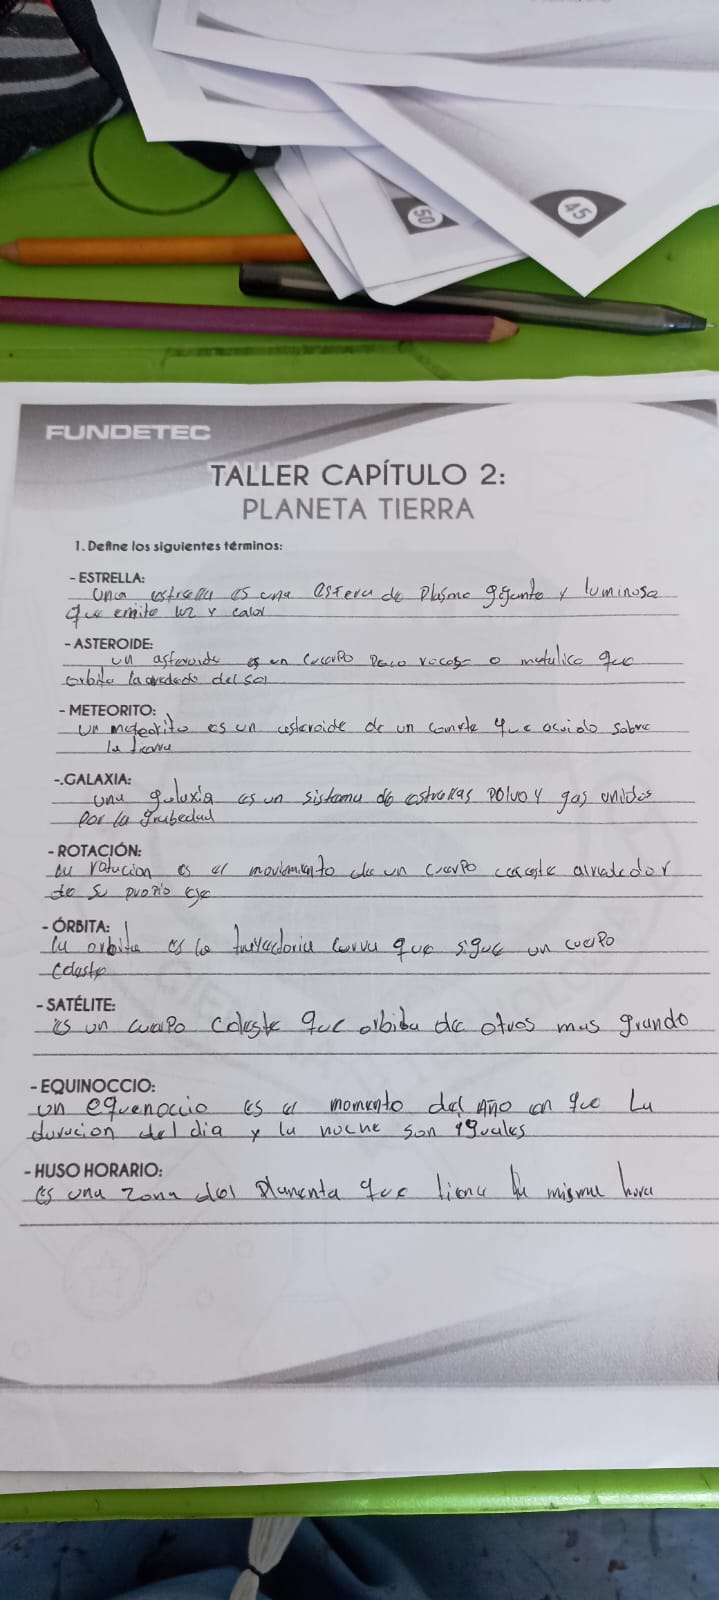 50
45
FUNDETEC
TALLER CAPÍTULO 2:
PLANETA TIERRA
1. Define los siguientes términos:
- ESTRELLA:
Una estrella es una esfera de Plasma gigante y luminosa
que emite luz y calor
- ASTEROIDE:
un asteroide es un cuerpo rocoso o metalico que
orbita del sol
- METEORITO:
un meteorito es un asteroide de un cometa que sobre
la tierra
-.GALAXIA:
una galaxia es un sistema de estrellas polvo y gas unidos
por la grabedad
- ROTACIÓN:
la rotacion es el movimiento de un cuerpo celeste alrededor
de su propio eje
- ÓRBITA:
la orbita es la curva que sigue un cuerpo
celeste
- SATÉLITE:
es un cuerpo celeste que orbita de otros mas grande
- EQUINOCCIO:
un equenocio es el momento del Año en que La
duracion del dia y la noche son iguales
- HUSO HORARIO:
es una zona del planenta que tiene la misma hora